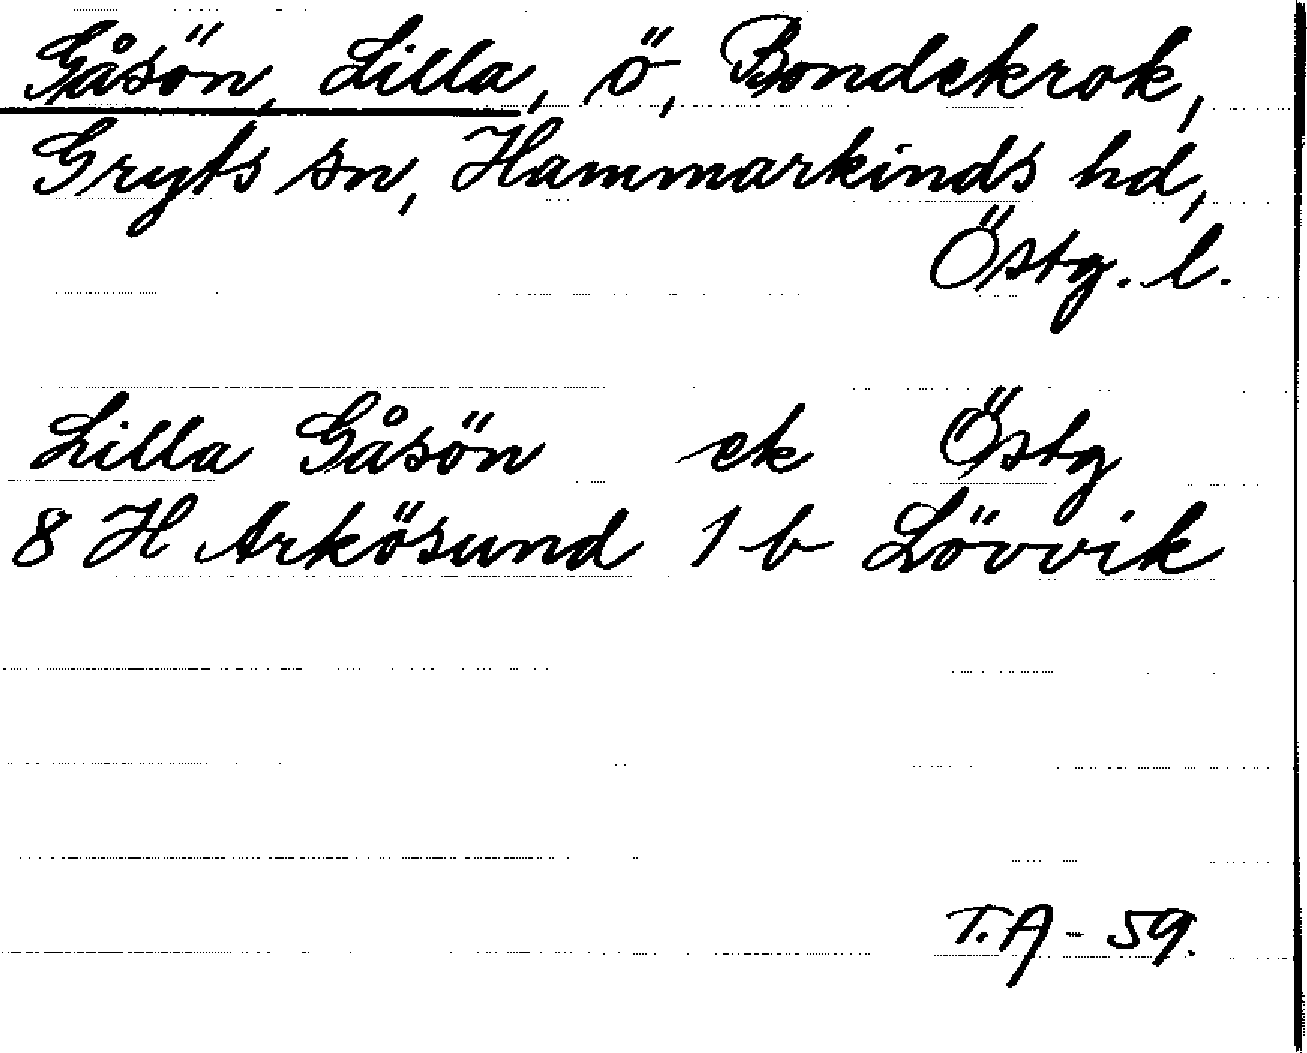 Gåsön, Lilla, ö, Bondekrok,
Gryts sn, Hammarkinds hd,
Östg. l.
Lilla Gåsön ek Östg
8 H Arkösund 1 b Lövvik
T.A - 59.